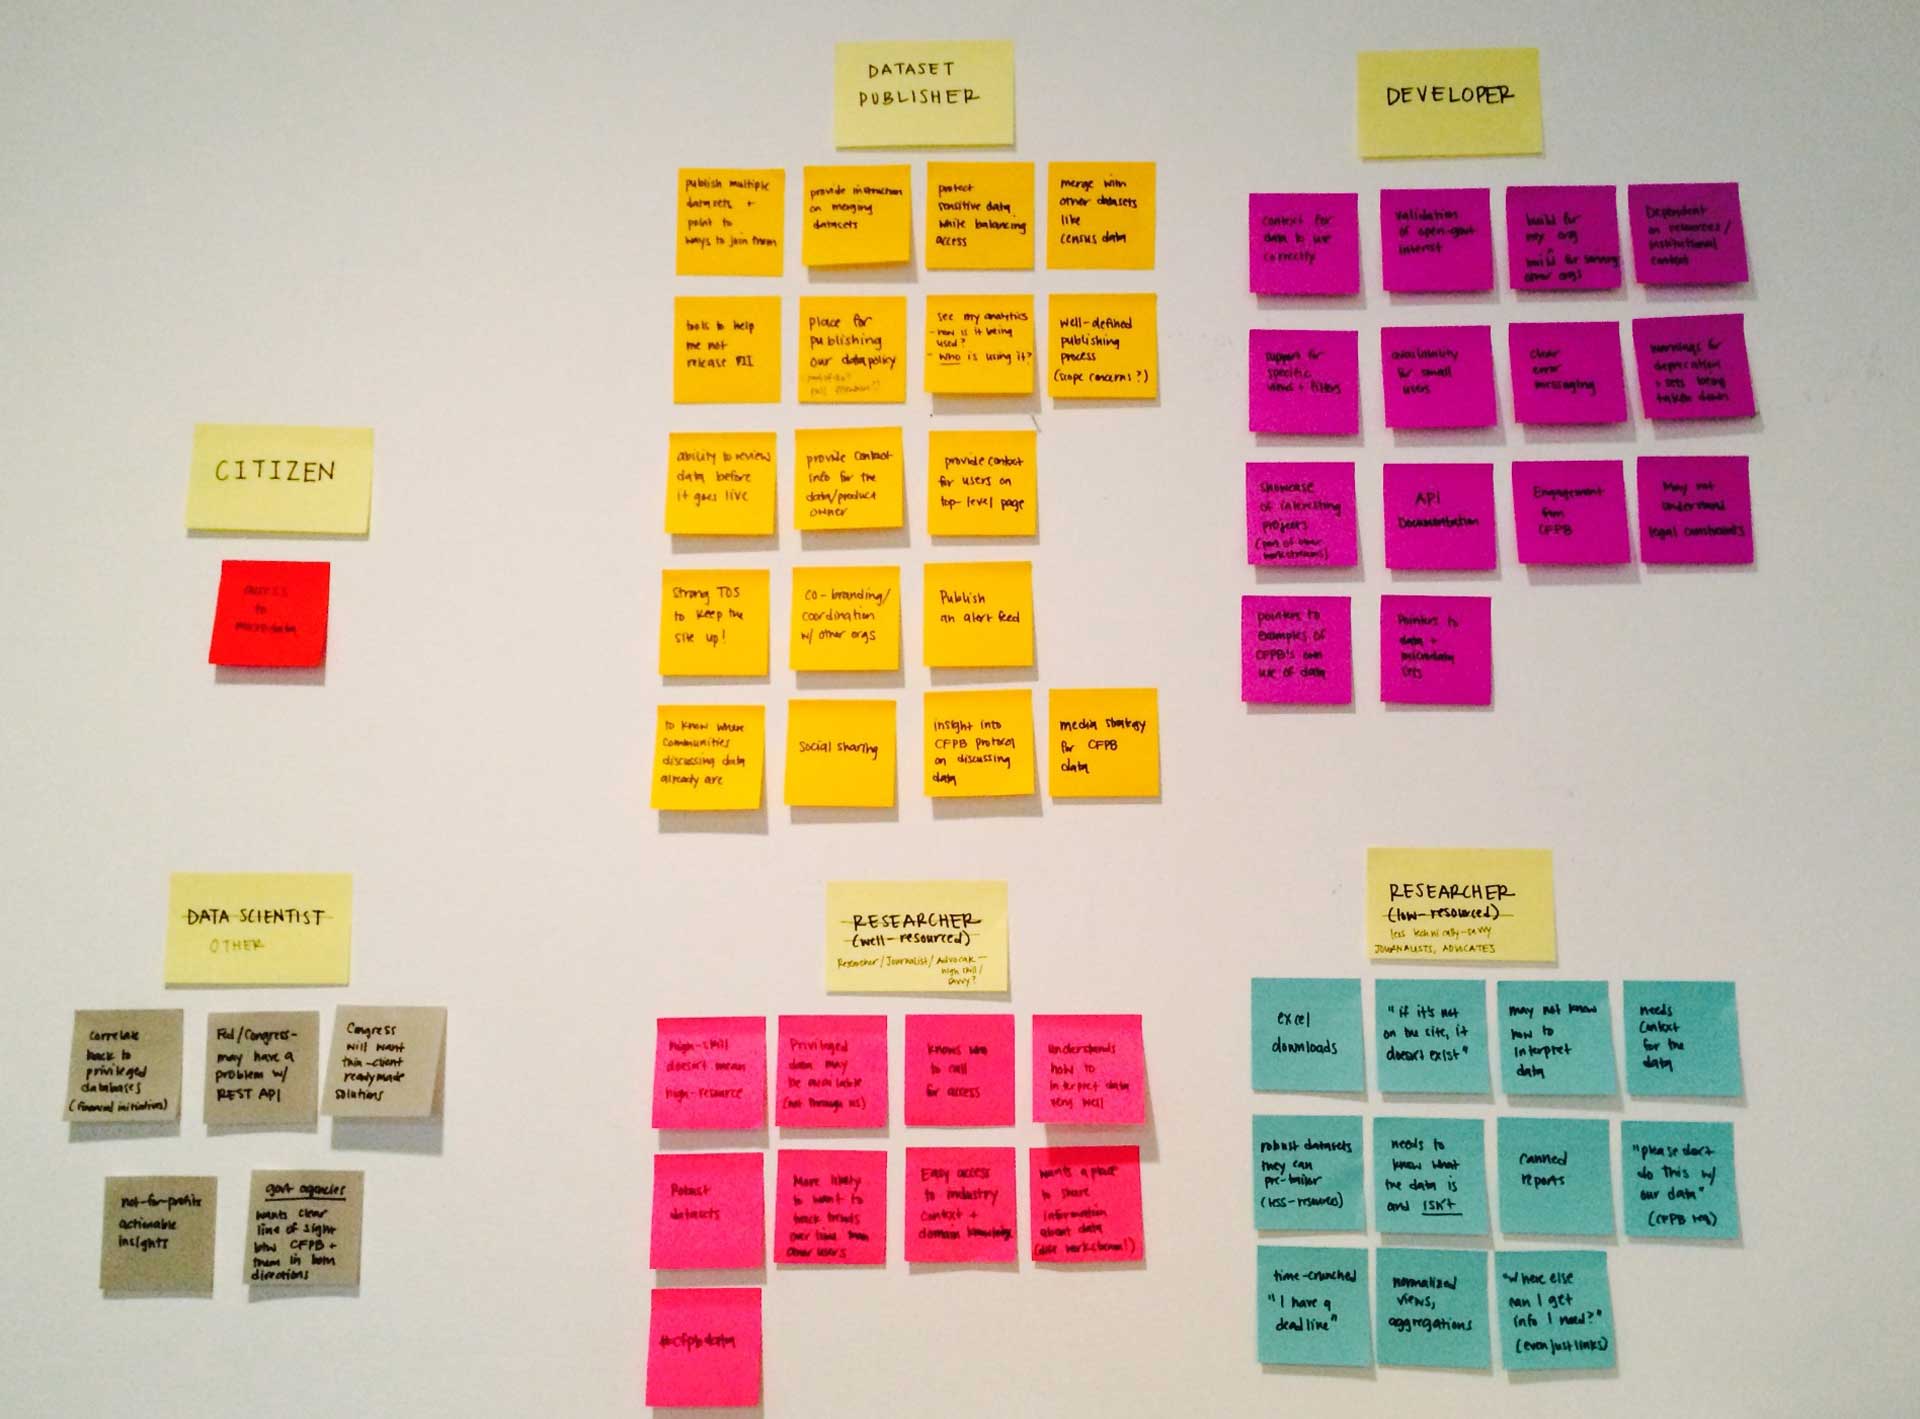 DATASET
PUBLISHER
publish multiple
datasets +
point to
ways to join them
provide instruction
on merging
datasets
protect
sensitive data
while balancing
access
merge with
other datasets
like
census data
tools to help
me not
release PII
place for
publishing
our data policy
see my analytics
- how is it being
used?
- who is using it?
well-defined
publishing
process
(scope concerns?)
ability to review
data before
it goes live
provide contact
info for the
data/product
owner
provide contact
for users on
top-level page
Strong TOS
to keep the
site up!
co-branding/
coordination
w/ other orgs
Publish
an alert feed
to know where
communities
discussing data
already are
social sharing
insight into
CFPB protocol
on discussing
data
media strategy
for CFPB
data
DEVELOPER
context for
data to use
correctly
validation
of open-govt
interest
build for
my org
build for serving
other orgs
Dependent
on resources/
institutional
context
support for
specific
views + filters
availability
for small
users
clear
error
messaging
warnings for
deprecation
+ sets being
taken down
showcase
of interesting
projects
(part of other
workstreams)
API
Documentation
Engagement
from
CFPB
May not
understand
legal constraints
pointers to
examples of
CFPB's own
use of data
Pointers to
data +
microdata
sets
CITIZEN
access
to
microdata
DATA SCIENTIST
OTHER
correlate
back to
privileged
databases
(financial initiatives)
Fed/Congress-
may have a
problem w/
REST API
Congress
will want
thin-client
readymade
solutions
not-for-profits
actionable
insights
govt agencies
wants clear
line of sight
btw CFPB +
them in both
directions
RESEARCHER
(well-resourced)
Researcher/Journalist/Advocate-
high skill/
savvy?
high-skill
doesn't mean
high-resource
Privileged
data may
be available
(not through us)
knows who
to call
for access
understands
how to
interpret data
very well
Robust
datasets
More likely
to want to
track trends
over time than
other users
Easy access
to industry
context +
domain knowledge
wants a place
to share
information
about data
#cfpbdata
RESEARCHER
(low-resourced)
less technically-savvy
JOURNALISTS, ADVOCATES
excel
downloads
"if it's not
on the site, it
doesn't exist"
may not know
how to
interpret
data
needs
context
for the
data
robust datasets
they can
pre-tailor
(less-resources)
needs to
know what
the data is
and isn't
canned
reports
"please don't
do this w/
our data"
(CFPB req)
time-crunched
"I have a
deadline"
normalized
views,
aggregations
"where else
can I get
info I need?"
(even just links)